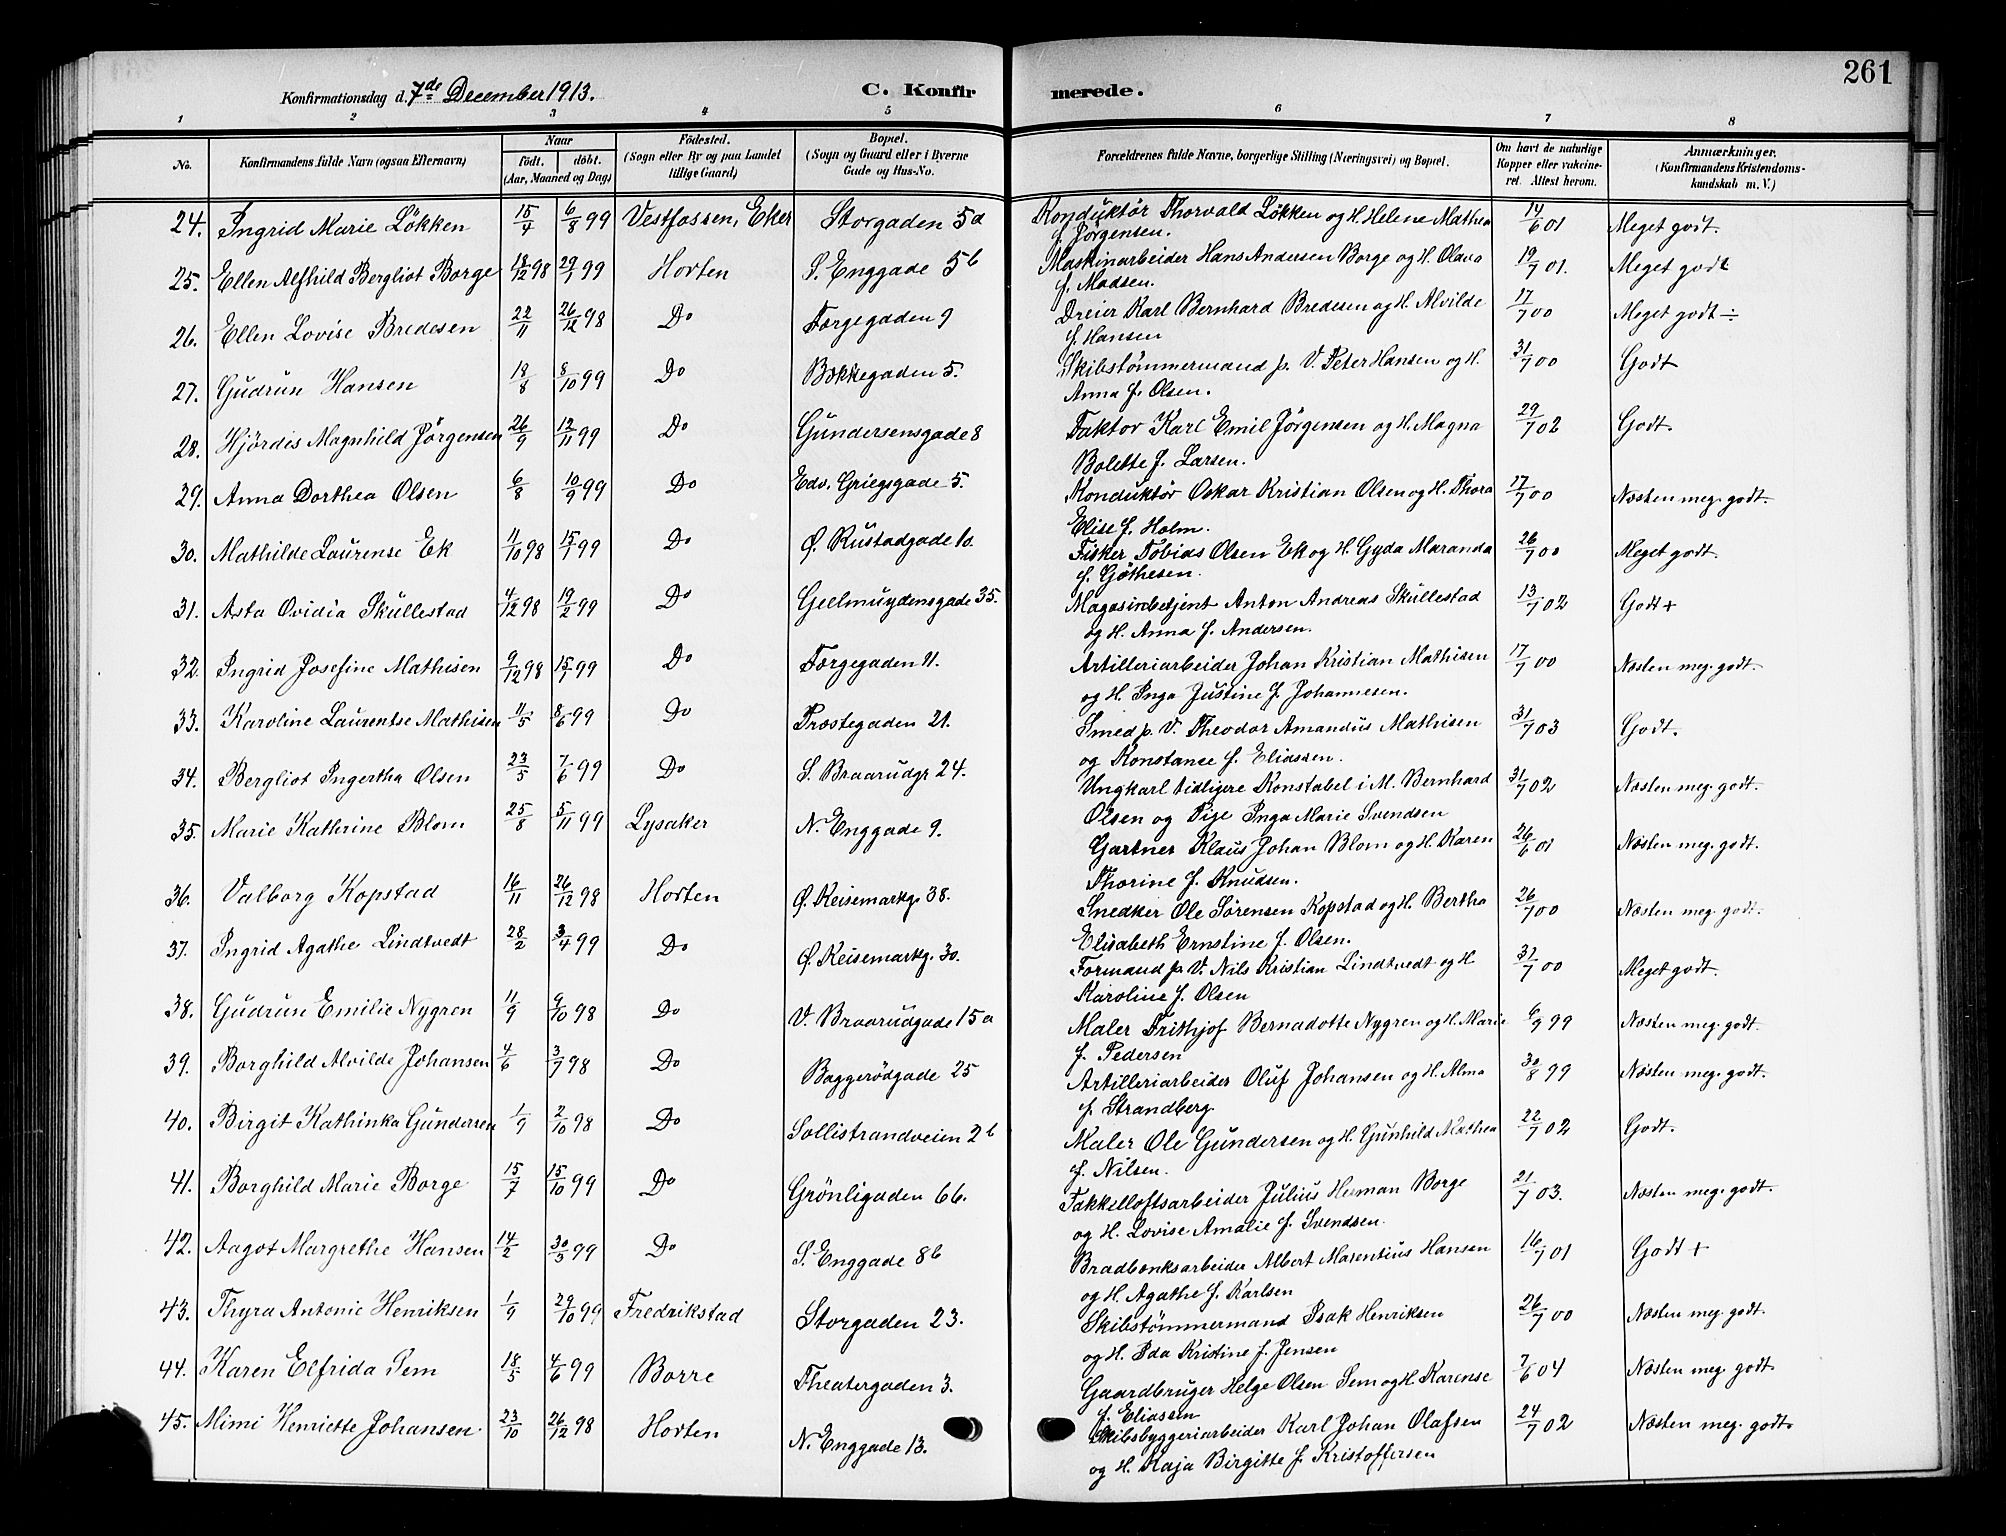 261
Konfirmationsdag d. 7de December 1913. C. Konfir merede.
1 2 3 4 5 6 7 8
No. Konfirmandens fulde Navn (ogsaa Efternavn) Naar født. døbt. (Aar, Maaned og Dag) Födested. (Sogn eller By og paa Landet tillige Gaard) Bopæl. (Sogn og Gaard eller i Byerne Gade og Hus-No. Forældrenes fulde Navne, borgerlige Stilling (Næringsvei) og Bopæl. Om havt de naturlige Kopper eller vakcineret. Attest herom. Anmærkninger. (Konfirmandens Kristendomskundskab m. V.)
24. Ingrid Marie Løkken 15/4 6/8 99 Vestfossen, Eker Storgaden 5a Konduktør Thorvald Løkken og H. Helene Mathea 14/6 01 Meget godt.
f. Jørgensen.
25. Ellen Alfhild Bergliot Borge 18/12 98 29/1 99 Horten S. Enggade 5b Maskinarbeider Hans Andersen Borge og H. Olava 19/7 01. Meget godt
f. Madsen.
26. Ellen Lovise Bredesen 22/11 26/12 98 Do Torgegaden 9 Dreier Karl Bernhard Bredesen og H. Alvilde 17/7 00 Meget godt ÷
f. Hansen
27. Gudrun Hansen 18/8 8/10 99 Do Bakkegaden 5. Skibstømmermand p. V. Peter Hansen og H. 31/7 00 Godt
Anna f. Olsen.
28. Hjördis Magnhild Jørgensen 26/9 12/11 99 Do Gundersensgade 8 Faktor Karl Emil Jørgensen og H. Magna 29/7 02 Godt.
Bolette f. Larsen.
29. Anna Dorthea Olsen 6/8 10/9 99 Do Edv. Griegsgade 5. Konduktør Oskar Kristian Olsen og H. Thora 17/7 00 Næsten meg. godt.
Elise f. Holm.
30. Mathilde Laurense Ek 11/10 98 15/1 99 Do Ø. Rustadgade 10. Fisker Tobias Olsen Ek og H. Gyda Maranda 26/7 00 Meget godt.
f. Gøthesen.
31. Asta Ovidia Skullestad 4/12 98 19/2 99 Do Geelmuydensgade 35. Magasinbetjent Anton Andreas Skullestad 13/7 02 Godt +
og H. Anna f. Andersen.
32. Ingrid Josefine Mathisen 9/12 98 15/1 99 Do Torgegaden 11. Artilleriarbeider Johan Kristian Mathisen 17/7 00 Næsten meg. godt.
og H. Inga Justine f. Johannesen.
33. Karoline Laurentse Mathisen 11/5 8/6 99 Do Præstegaden 21. Smed p. V. Theodor Amandus Mathisen 31/7 03 Godt.
og Konstanse f. Eliassen.
34. Bergliot Ingertha Olsen 23/5 7/6 99 Do S. Braarudgt 24. Ungkarl tidligere Konstabel i M. Bernhard 31/7 02 Næsten meg. godt.
Olsen og Pige Inga Marie Svendsen
35. Marie Kathrine Blom 25/8 5/11 99 Lysaker N. Enggade 9. Gartner Klaus Johan Blom og H. Karen 26/6 01 Næsten meg. godt.
Thorine f. Knudsen.
36. Valborg Kopstad 16/11 26/12 98 Horten Ø. Keisemarkg. 38. Snedker Ole Sørensen Kopstad og H. Bertha 26/7 00 Næsten meg. godt.
Elisabeth Ernstine f. Olsen.
37. Ingrid Agathe Lindtvedt 28/2 3/4 99 Do Ø. Keisemarkg. 30. Formand p. V. Nils Kristian Lindtvedt og H 31/7 00 Meget godt.
Karoline f. Olsen
38. Gudrun Emilie Nygren 11/9 9/10 98 Do V. Braarudgade 15a Maler Frithjof Bernadotte Nygren og H. Marie 6/9 99 Næsten meg. godt.
f. Pedersen
39. Borghild Alvilde Johansen 4/6 3/7 98 Do Baggerødgade 25 Artilleriarbeider Oluf Johansen og H. Alma 30/8 99 Næsten meg. godt.
f. Strandberg
40. Birgit Kathinka Gundersen 1/9 2/10 98 Do Sollistrandveien 2b Maler Ole Gundersen og H. Gunhild Mathea 22/7 02 Godt.
f. Nilsen.
41. Borghild Marie Borge 15/7 15/10 99 Do Grønligaden 66. Takkelloftsarbeider Julius Herman Borge 21/7 03. Næsten meg. godt.
og H. Lovise Amalie f. Svendsen.
42. Aagot Margrethe Hansen 14/2 30/3 99 Do S. Enggade 8b Bradbænksarbeider Albert Marentius Hansen 16/7 01 Godt +
og H. Agathe f. Karlsen
43. Thyra Antonie Henriksen 1/9 29/10 99 Fredrikstad Storgaden 23. Skibstømmermand Isak Henriksen 26/7 00 Næsten meg. godt.
og H. Ida Kristine f. Jensen
44. Karen Elfrida Sem 18/5 4/6 99 Borre Theatergaden 3. Gaardbruger Helge Olsen Sem og H. Karense 7/6 04 Næsten meg. godt
f. Eliassen
45. Mimi Henriette Johansen. 23/10 26/12 98 Horten N. Enggade 13. Skibsbyggeriarbeider Karl Johan Olafsen 24/7 02 Næsten meg. godt.
og H. Kaja Birgitte f. Kristoffersen